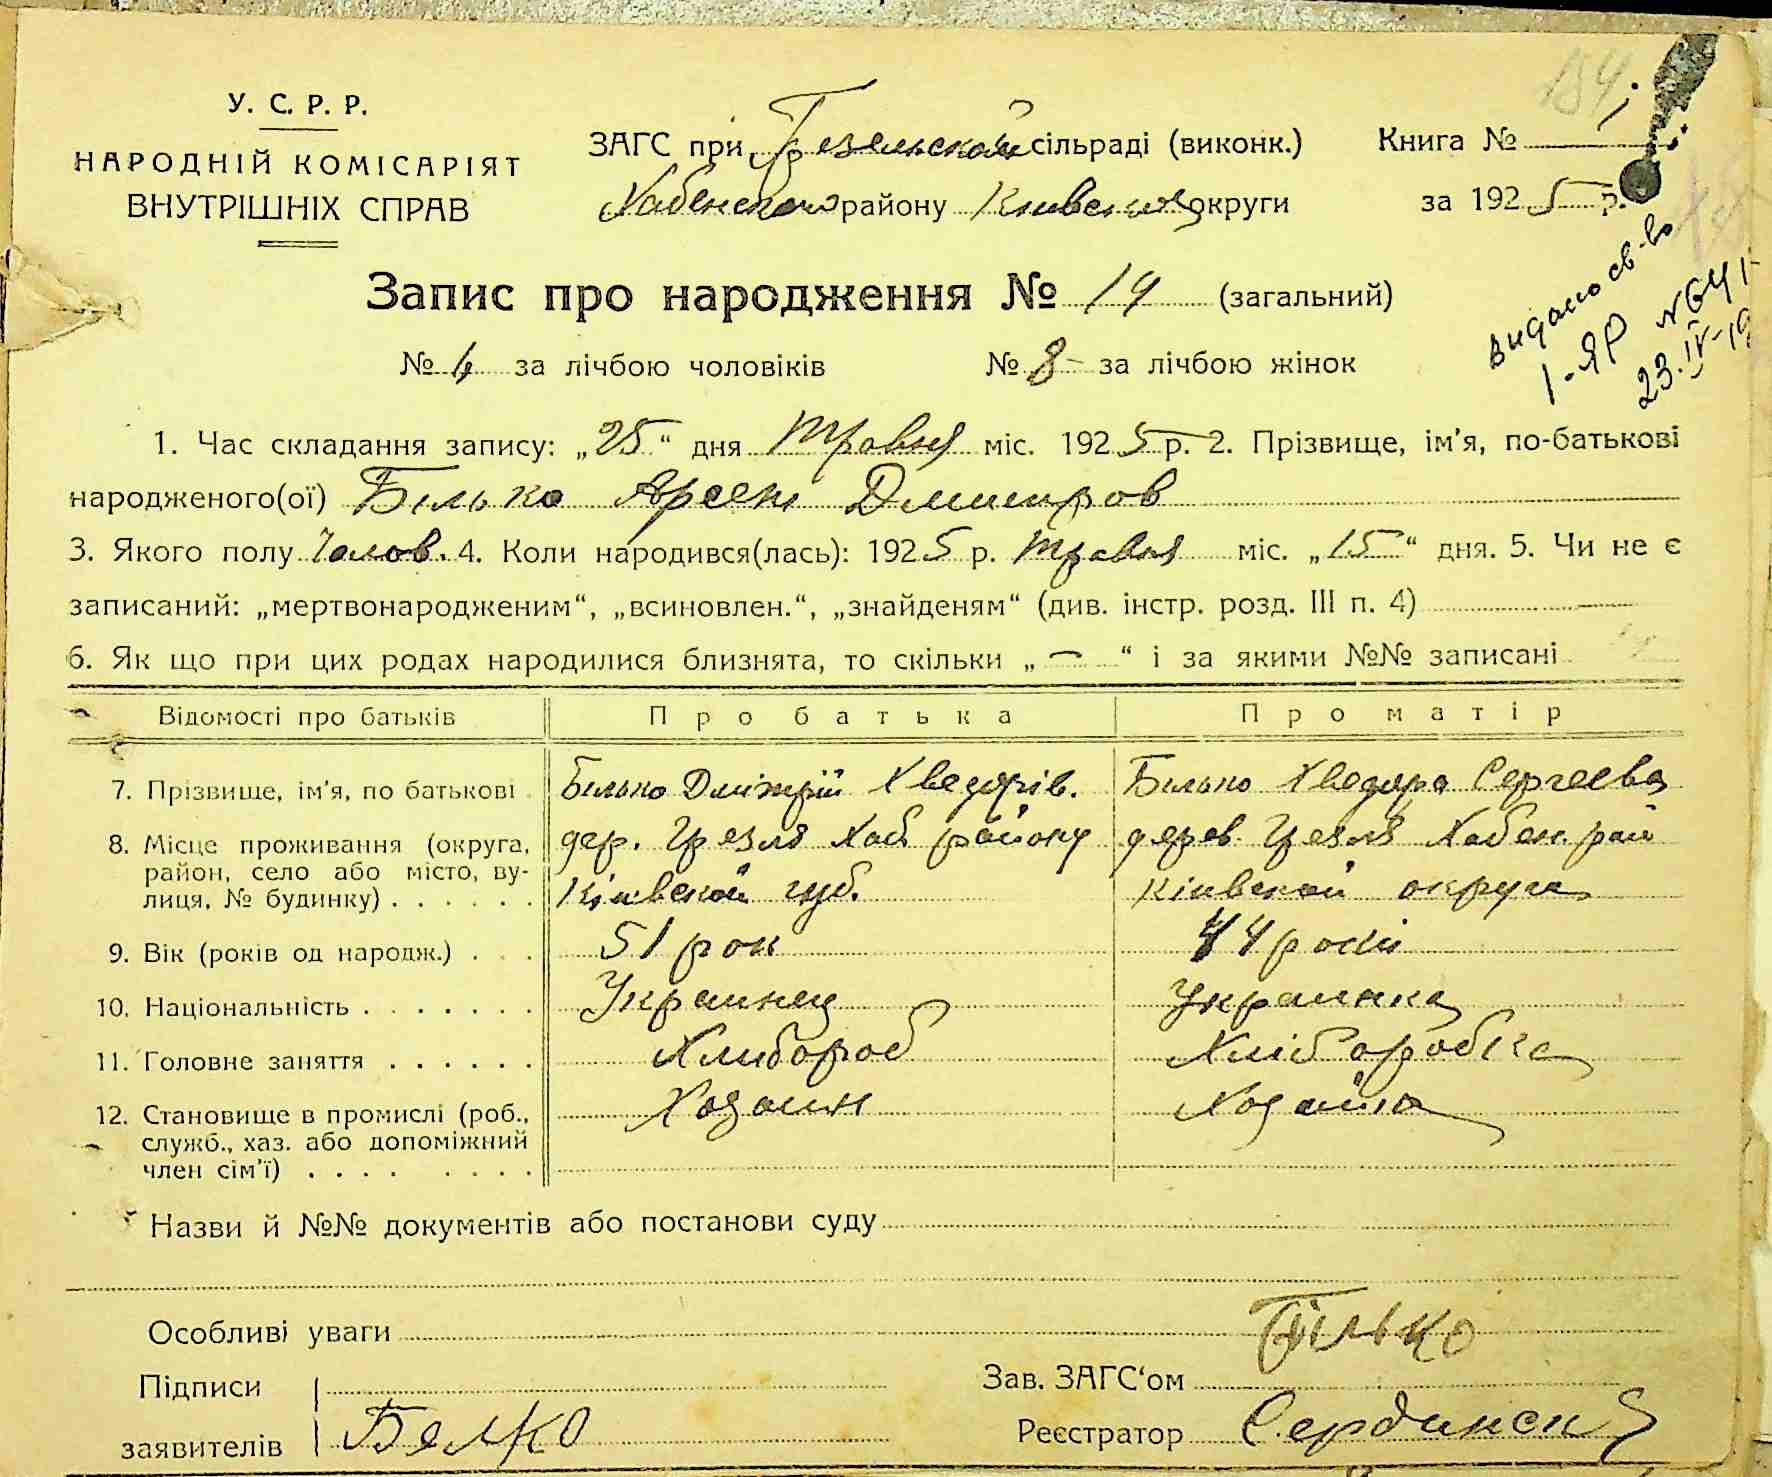 154
У. С. Р. Р.
НАРОДНІЙ КОМІСАРІЯТ
ВНУТРІШНІХ СПРАВ
ЗАГС при Грезельской сільраді (виконк.)
Хабенского району Киевской округи
Книга № 1
за 1925 р.
Запис про народження № 14 (загальний)
№ 6 за лічбою чоловіків № 8 за лічбою жінок
видано св-во
I-ЯР №641
23.IV-19
1. Час складання запису: „25“ дня Травня міс. 1925 р. 2. Прізвище, ім'я, по-батькові
народженого(ої) Білько Арсен Дмитров
3. Якого полу Чолов. 4. Коли народився(лась): 1925 р. травня міс. „15“ дня. 5. Чи не є
записаний: „мертвонародженим“, „всиновлен.“, „знайденям“ (див. інстр. розд. III п. 4)
6. Як що при цих родах народилися близнята, то скільки „—“ і за якими №№ записані
Відомості про батьків Про батька Про матір
7. Прізвище, ім'я, по батькові Білько Дмітрій Хведорів. Білько Хведора Сергеева
8. Місце проживання (округа, дер. Грезля Хаб району дерев. Грезля Хабен. рай
район, село або місто, ву-
лиця, № будинку) . . . . . . Кіивской губ. Кіивской округи
9. Вік (років од народж.) . . . 51 рок 44 роки
10. Національність . . . . . . . Украинец Украинка
11. Головне заняття . . . . . . Хлибороб Хлиборобка
12. Становище в промислі (роб., Хозаин Хозайка
служб., хаз. або допоміжний
член сім'ї) . . . . . . . .
Назви й №№ документів або постанови суду
Особливі уваги
Підписи
заявителів Белко
Зав. ЗАГС'ом Білько
Реєстратор Сердинск